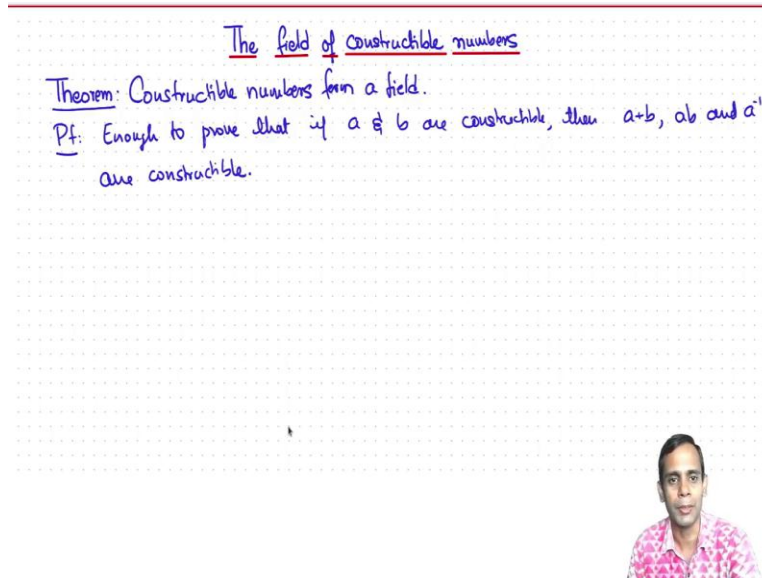 The field of constructible numbers
Theorem: Constructible numbers form a field.
Pf: Enough to prove that if a & b are constructible, then a+b, ab and a⁻¹
are constructible.